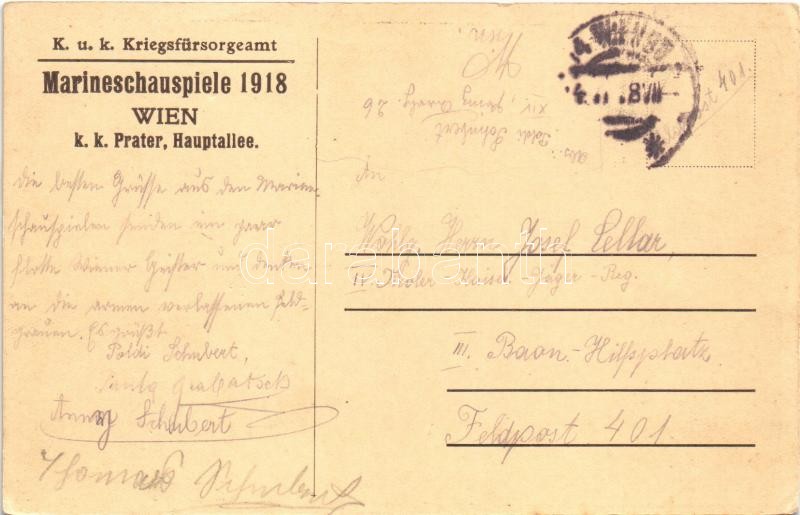 K. u. k. Kriegsfürsorgeamt
Marineschauspiele 1918
WIEN
k. k. Prater, Hauptallee.
die besten Grüsse aus den Marine-
schauspielen senden ein paar
flotte Wiener Geister und denken
an die armen verlassenen Feld-
grauen. Es grüßt
Poldi Schubert,
Anny Schubert
Thomas Schubert
Abs:
Poldi Schubert
XIV, 26
Wien
Feldpost 401.
An
Wohlg. Herrn Josef Lellar,
II. Tiroler-Kaiser-Jäger-Reg.
III. Baon.-Hilfsplatz
Feldpost 401.
darabanth